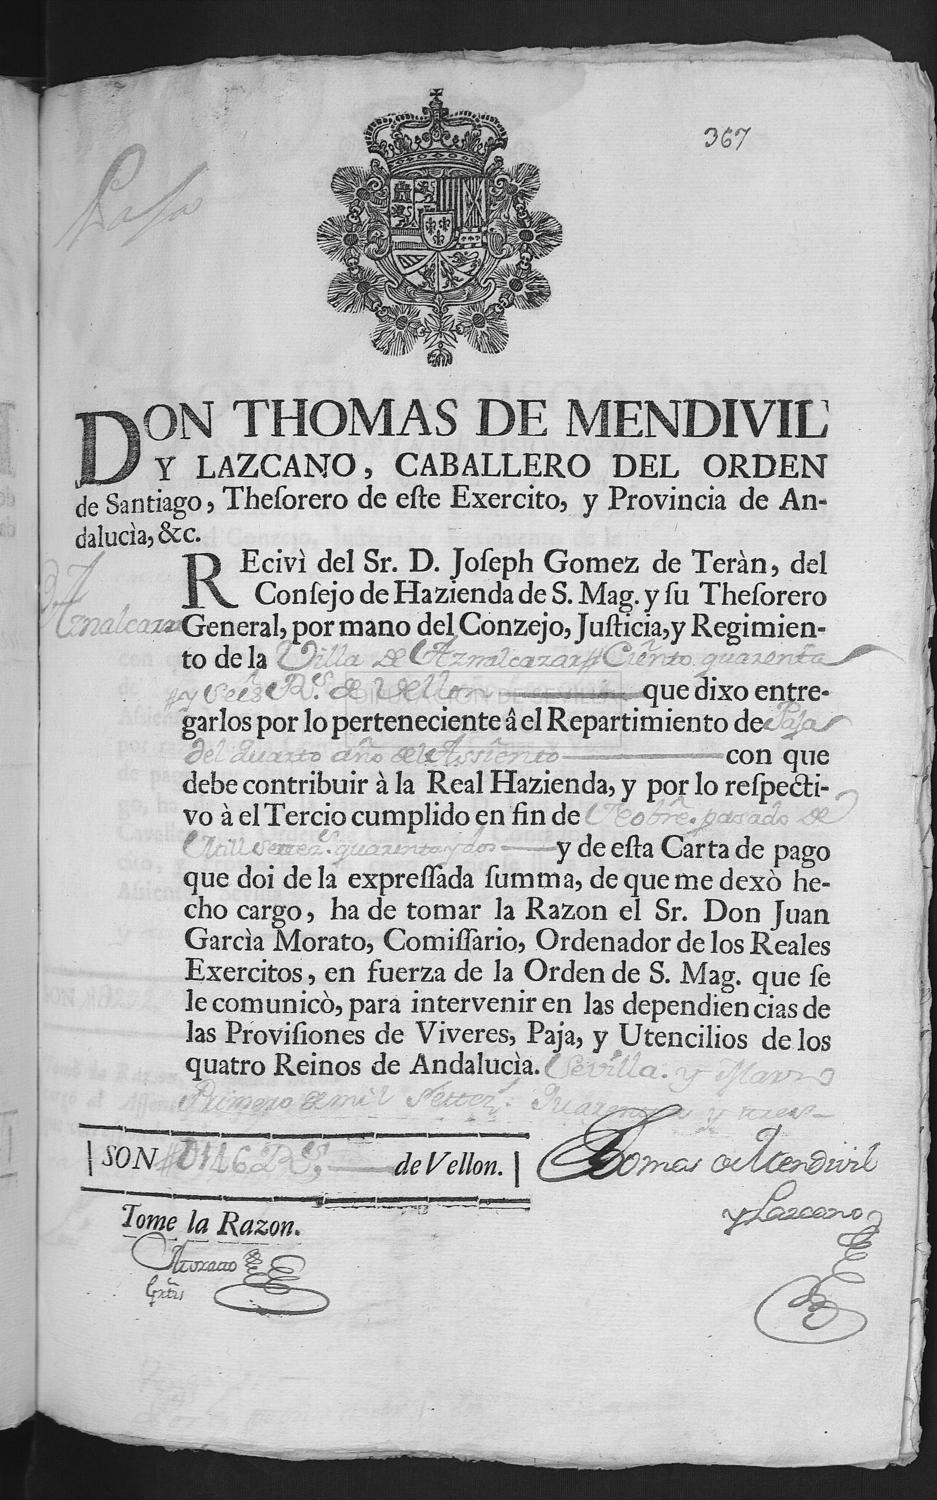 367
Paja
DON THOMAS DE MENDIVIL
Y LAZCANO, CABALLERO DEL ORDEN
de Santiago, Thesorero de este Exercito, y Provincia de An-
dalucìa, &c.
REcivì del Sr. D. Joseph Gomez de Teràn, del
Consejo de Hazienda de S. Mag. y su Thesorero
Aznalcazar General, por mano del Conzejo, Justicia, y Regimien-
to de la Villa de Aznalcazar Ciento quarenta
y seis Rs. de Vellon que dixo entre-
garlos por lo perteneciente â el Repartimiento de Paja
del quarto año del Assiento con que
debe contribuir à la Real Hazienda, y por lo respecti-
vo à el Tercio cumplido en fin de pasado de
Mill settez. quarenta y dos y de esta Carta de pago
que doi de la expressada summa, de que me dexò he-
cho cargo, ha de tomar la Razon el Sr. Don Juan
Garcìa Morato, Comissario, Ordenador de los Reales
Exercitos, en fuerza de la Orden de S. Mag. que se
le comunicò, para intervenir en las dependiencias de
las Provisiones de Viveres, Paja, y Utencilios de los
quatro Reinos de Andalucìa. Sevilla. y Marzo
Primero de mil settez. quarenta y tres
SON 0146 Rs, de Vellon.
Thomas de Mendivil
y Lazcano
Tome la Razon.
Morato